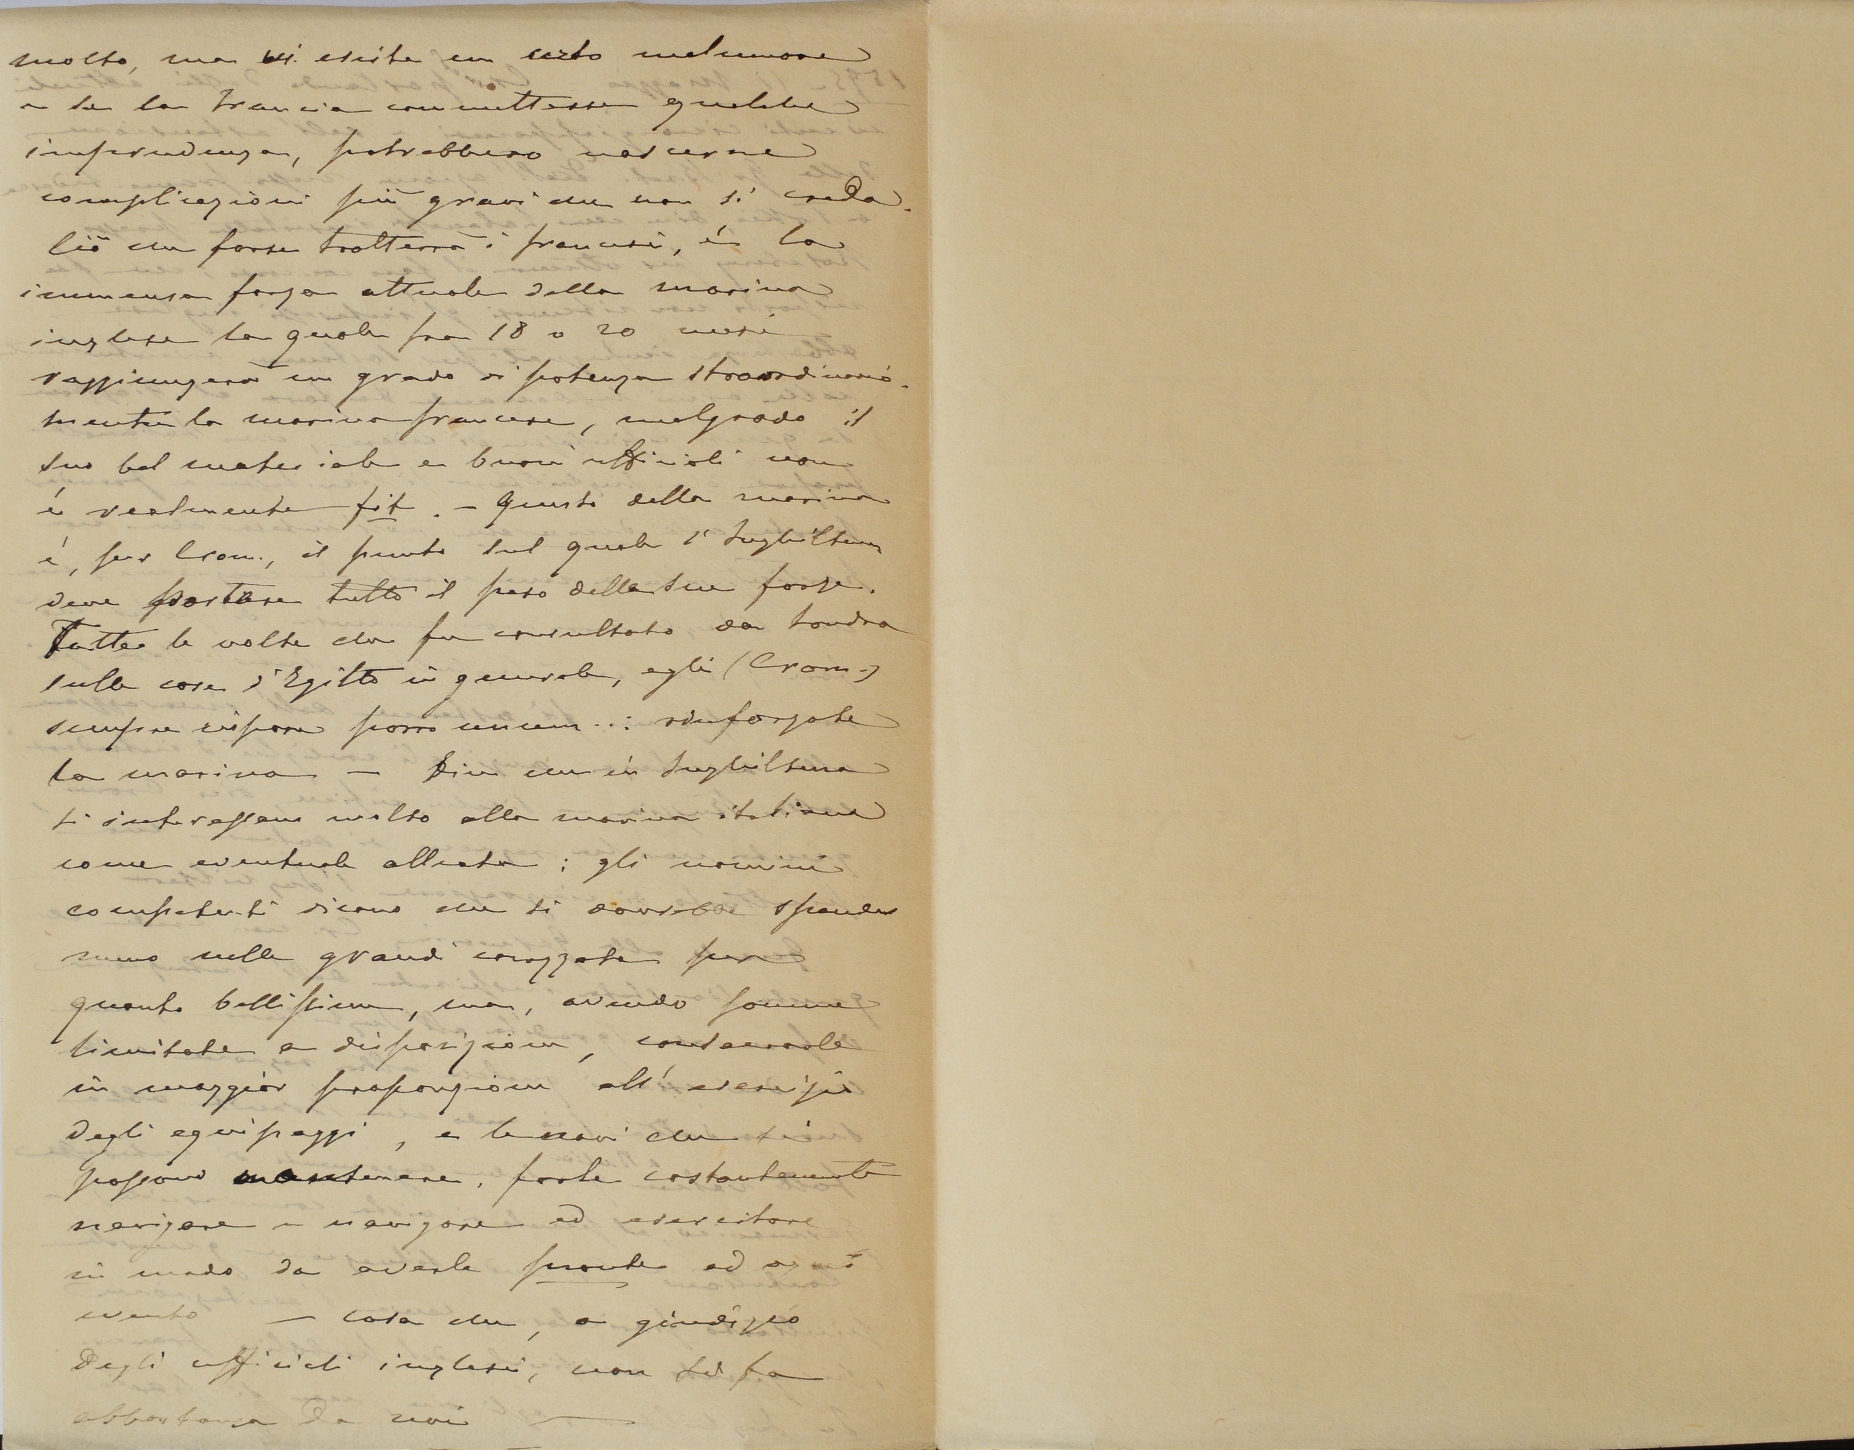 molto, ma vi esiste un certo malumore
e se la Francia commettesse qualche
imprudenza, potrebbero nascerne
complicazioni più gravi che non si creda.
Ciò che forse tratterrà i francesi, è la
immensa forza attuale della marina
inglese la quale fra 18 o 20 mesi
raggiungerà un grado di potenza straordinario.
mentre la marina francese, malgrado il
suo bel materiale e buoni ufficiali non
è realmente fit. – Questo della marina
è, per Crom., il punto sul quale l'Inghilterra
deve portare tutto il peso delle sue forze.
Tutte le volte che fu consultato da Londra
sulle cose d'Egitto in generale, egli (Crom.)
sempre rispose porro unum ..: rinforzate
la marina — Dice che in Inghilterra
si interessano molto alla marina italiana
come eventuale alleata: gli uomini
competenti dicono che si dovrebbe spender
meno nelle grandi corazzate per
quanto bellissime, ma, avendo somme
limitate a disposizione, consacrarle
in maggior proporzione all'esercizio
degli equipaggi, e le navi che si
possono mantenere, farle costantemente
navigare e navigare ed esercitare
in modo da averle pronte ad ogni
evento — cosa che, a giudizio
degli ufficiali inglesi, non si fa
abbastanza da noi —